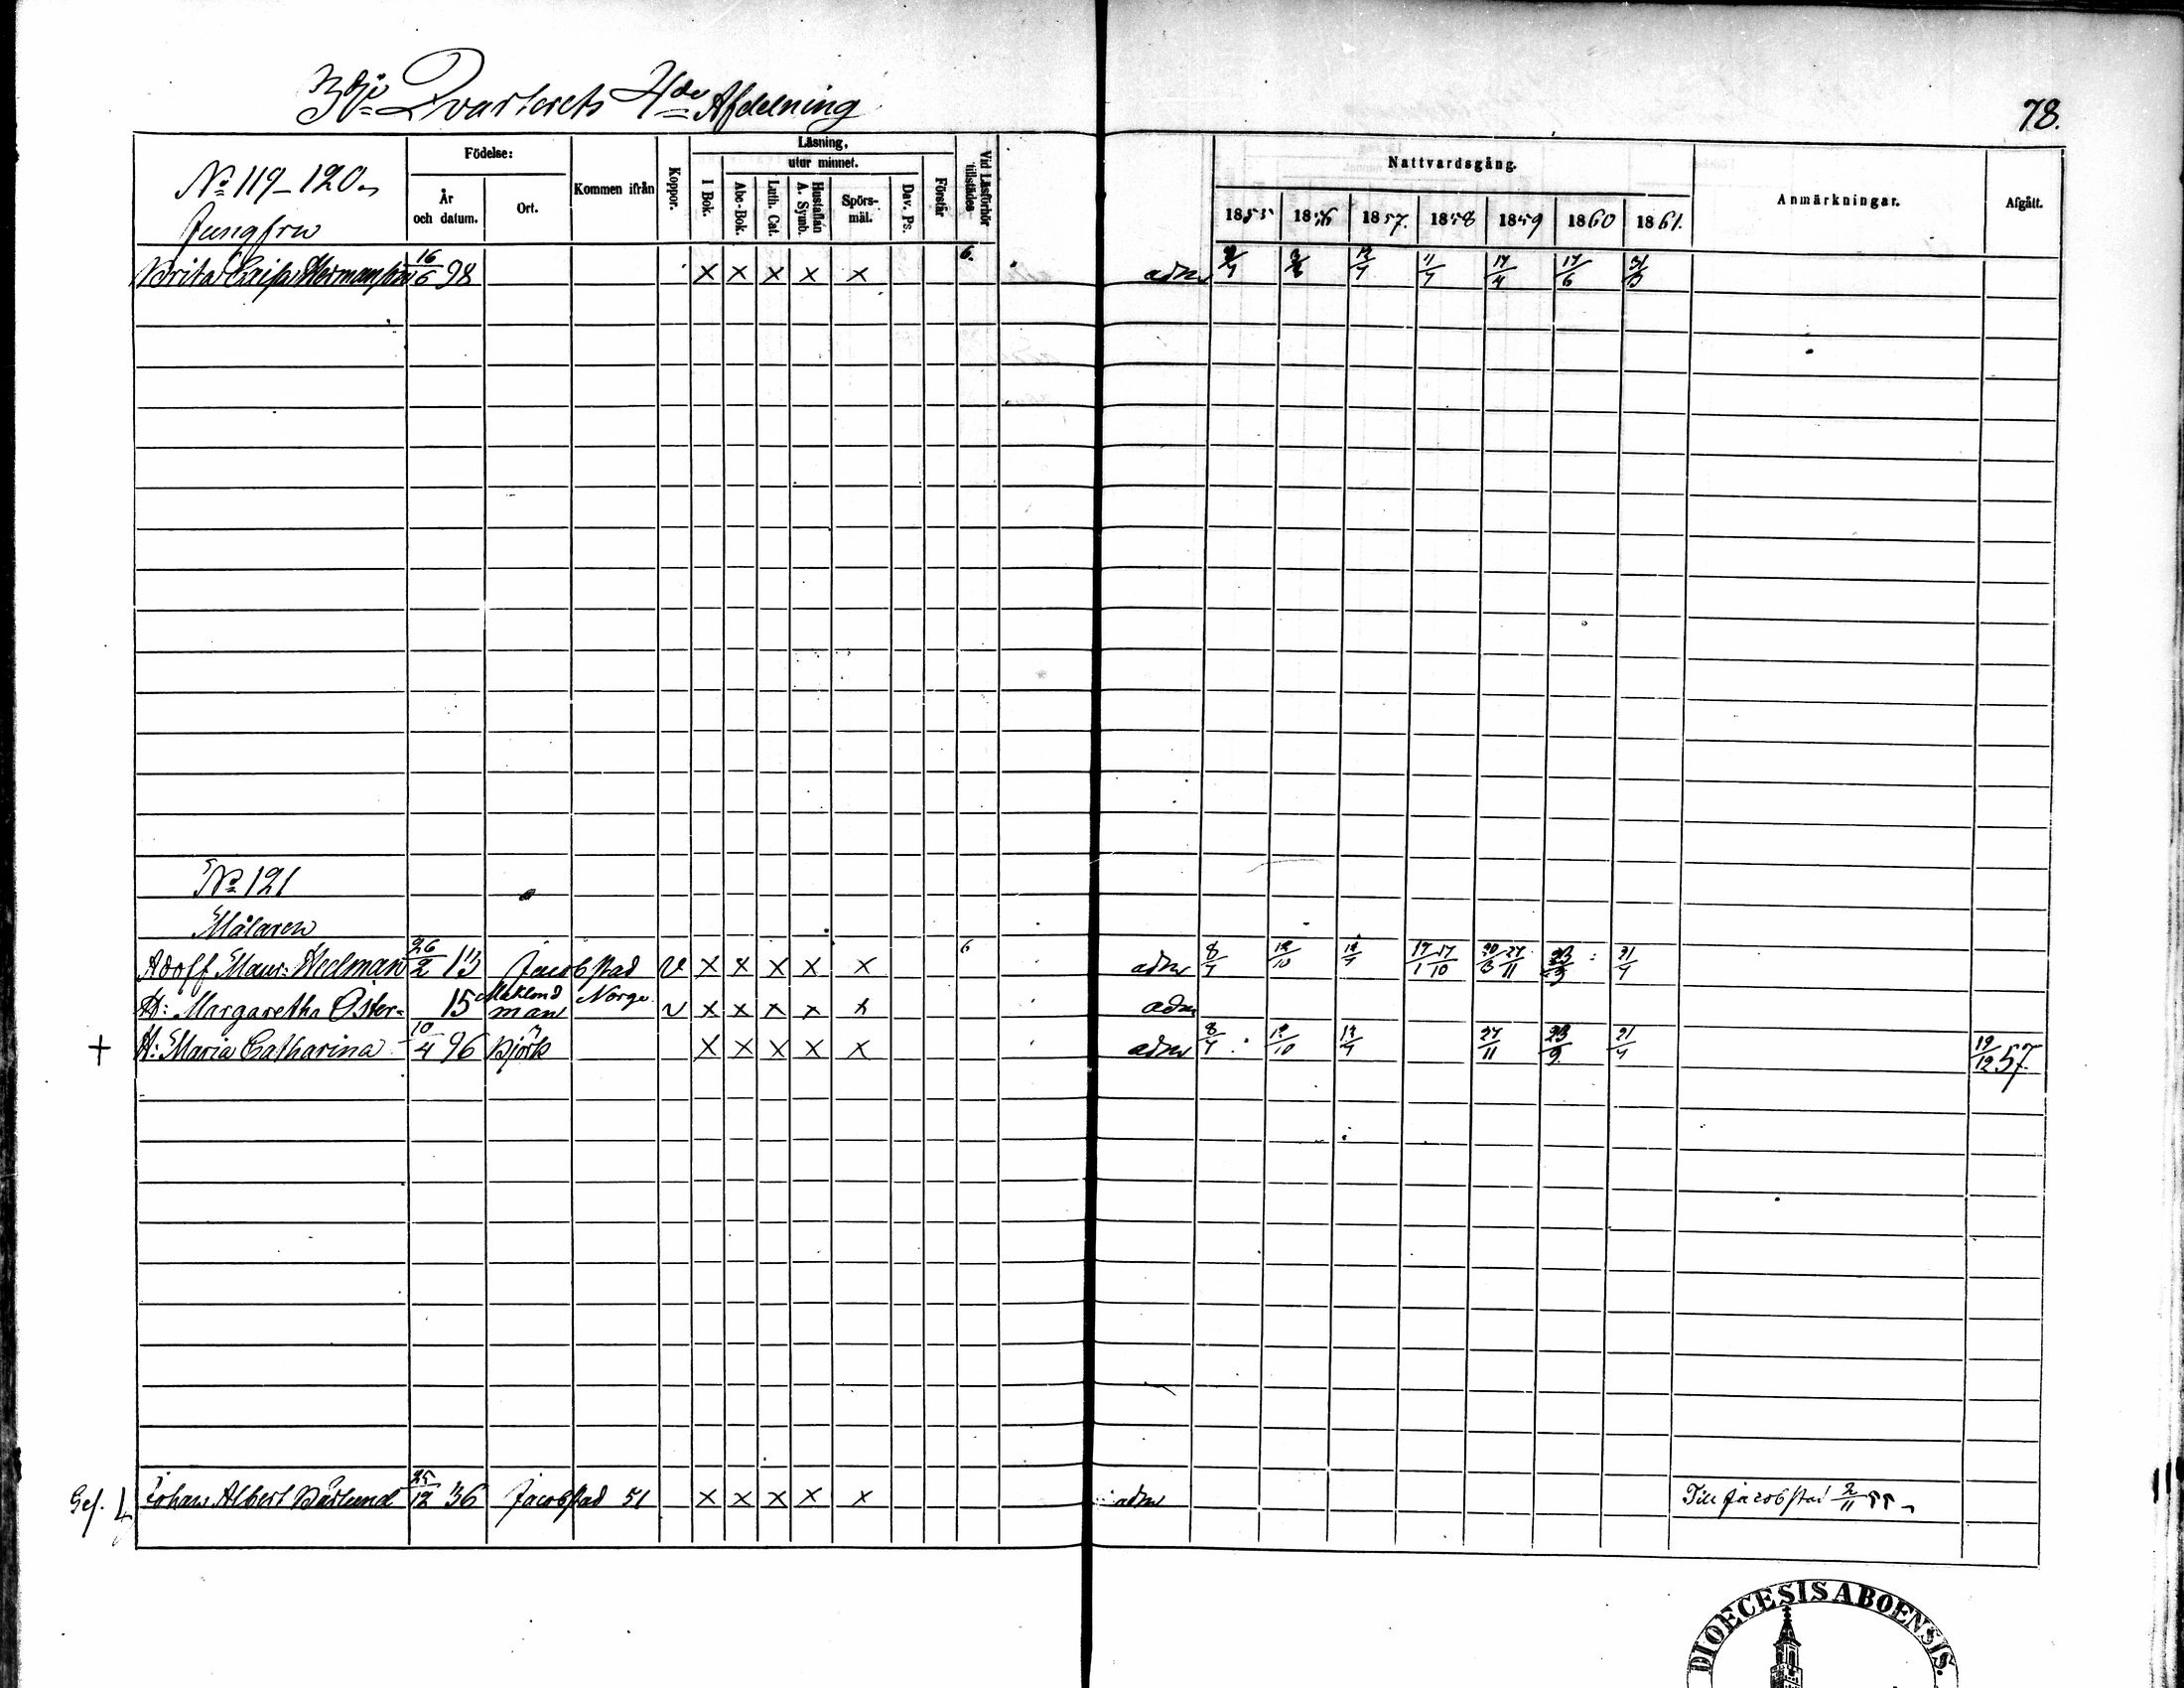 3dje Qvarterets 4de Afdelning
78.
No 119-120.
Födelse:
År och datum.
Ort.
Kommen ifrån
Koppor.
Läsning,
utur minnet.
I Bok.
Abc-Bok.
Luth. Cat.
Hustaflan A. Symb.
Spörs-mål.
Dav. Ps.
Förstår
Vid Läsförhör tillstädes
Nattvardsgång.
1855 1856 1857. 1858 1859 1860 1861.
Anmärkningar.
Afgått.
Jungfru
Brita Caisa Hermanson 16/6 98 x x x x x 6. adm 12/7 11/7 17/4 17/6 31/3
No 121
Målaren
Adolf Maur: Hedman 26/2 13 Jacobstad v x x x x x 6 adm 8/7 12/10 12/7 17/1 17/10 20/3 27/11 23/9 21/4
H: Margaretha Öster-man 15 Norge v x x x x x adm
+ H: Maria Catharina Björk 10/4 96 x x x x x adm 8/7 12/10 12/7 27/11 23/9 21/4 19/12 57.
Ges. L Johan Albert Bärlund 25/12 36 Jacobstad 51 x x x x x adm Till Jacobstad 2/11 55
DIOECESIS ABOENSIS.